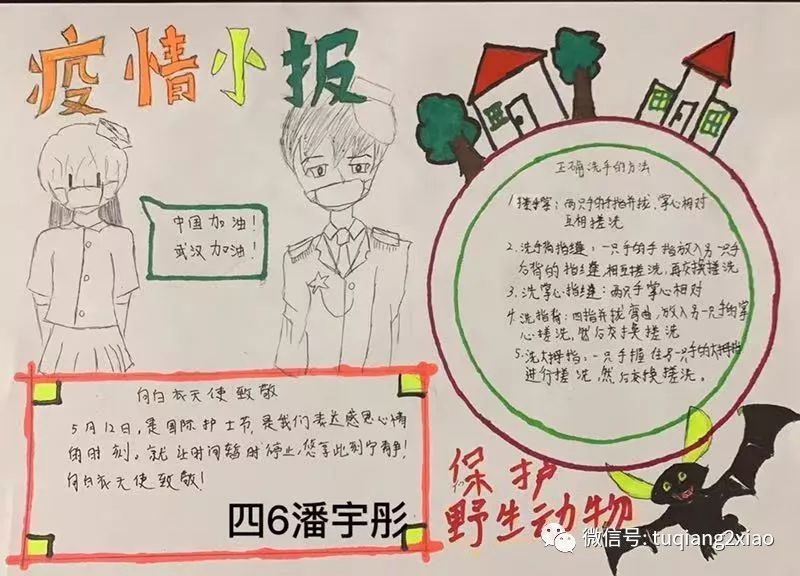 疫情小报
中国加油!
武汉加油!
正确洗手的方法
1.搓手掌:两只手的手指并拢,掌心相对
互相搓洗
2.洗手背指缝:一只手的手指放入另一只手
后背的指缝相互搓洗,再交换搓洗
3.洗掌心指缝:两只手掌心相对
4.洗指背:四指并拢弯曲,放入另一只手的掌
心搓洗,然后交换搓洗
5.洗大拇指:一只手握住另一只手的大拇指
进行搓洗,然后交换搓洗。
向白衣天使致敬
5月12日,是国际护士节,是我们表达感恩心情
的时刻。就让时间暂时停止,您享此刻宁静!
向白衣天使致敬!
四6潘宇彤
保护
野生动物
微信号: tuqiang2xiao